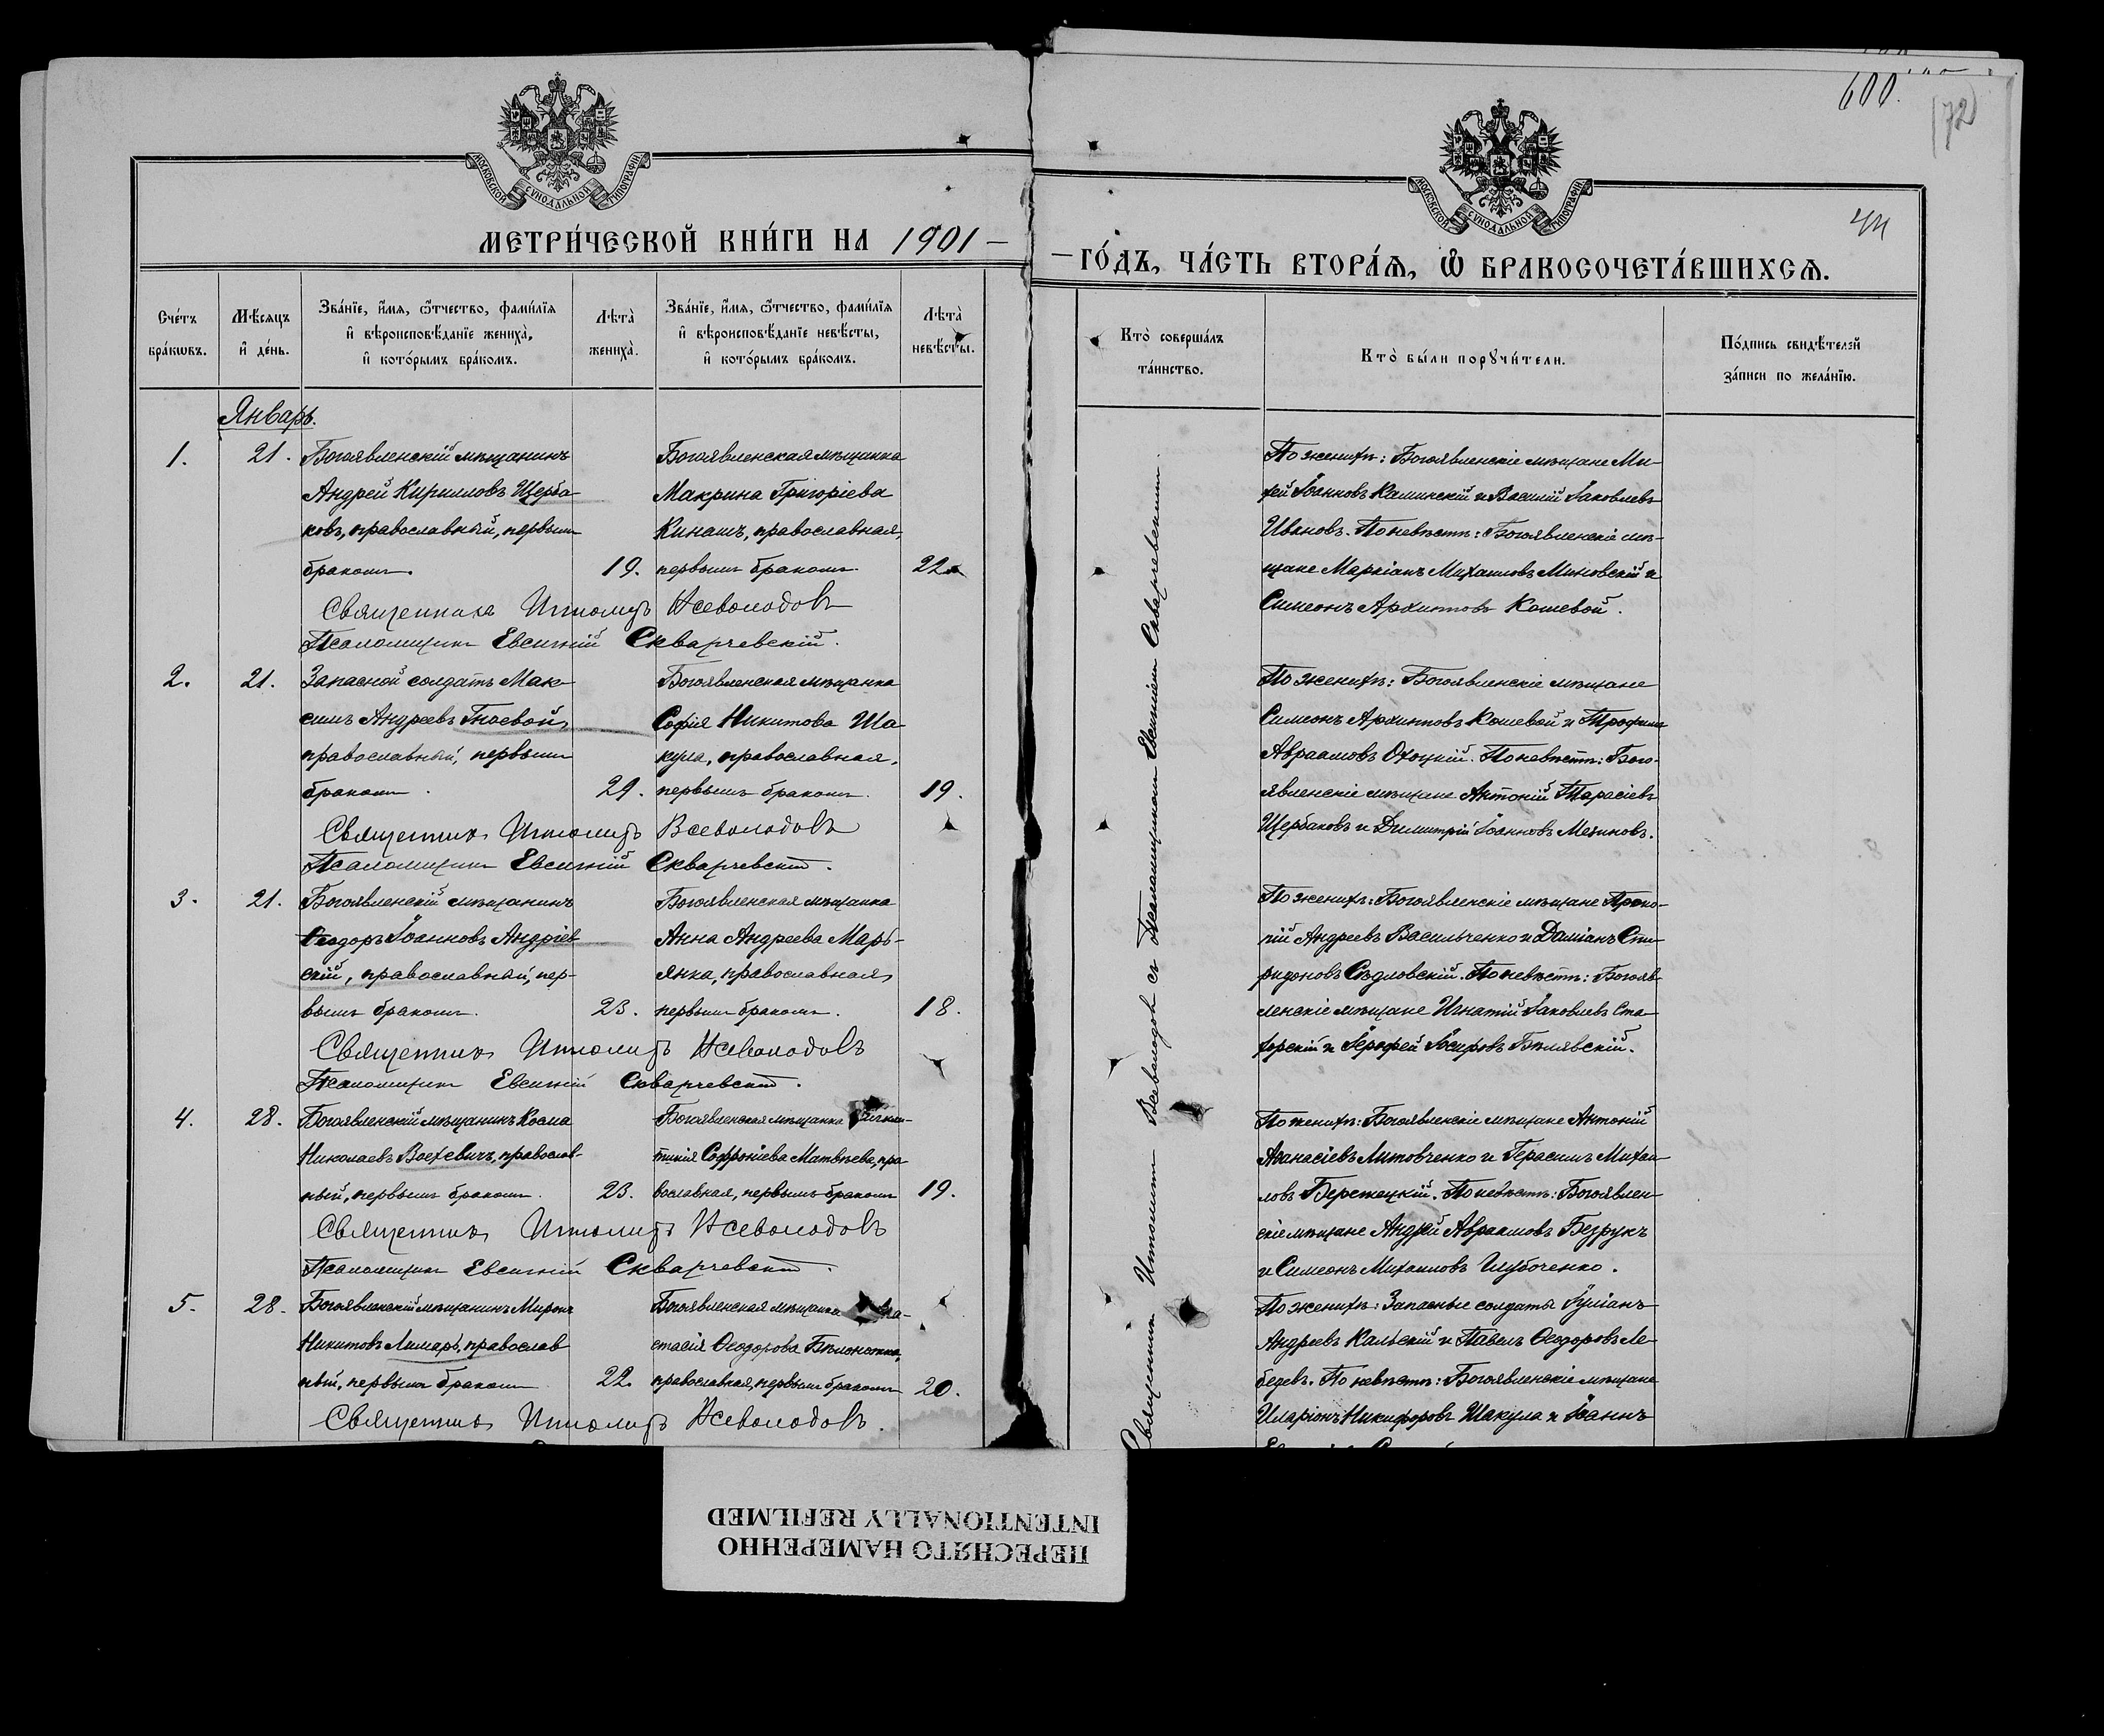 МОСКОВСКОЙ СѴНОДАЛЬНОЙ ТИПОГРАФІИ
МЕТРИ́ЧЕСКОЙ КНИ́ГИ НА 1901 —
Сче́тъ бра́кѡвъ.
Мѣ́сяцъ и҆ де́нь.
Зва́нїе, и҆́мѧ, ѻ҆́тчество, фами́лїѧ и҆ вѣроисповѣ́данїе женихà, и҆ кото́рымъ бра́комъ.
Лѣтà женихà.
Зва́нїе, и҆́мѧ, ѻ҆́тчество, фами́лїѧ и҆ вѣроисповѣ́данїе невѣ́сты, и҆ кото́рымъ бра́комъ.
Лѣтà невѣ́сты.
Январь.
1. 21. Богоявленскій мѣщанинъ
Андрей Кирилловъ Щерба-
ковъ, православный, первымъ
бракомъ. 19.
Богоявленская мѣщанка
Макрина Григоріева
Кинашъ, православная,
первымъ бракомъ. 22
Священникъ Ипполитъ Всеволодовъ
Псаломщикъ Евсигній Скварчевскій.
2. 21. Запасной солдатъ Мак-
симъ Андреевъ Гноевой,
православный, первымъ
бракомъ. 29.
Богоявленская мѣщанка
Софія Никитова Ша-
кула, православная,
первымъ бракомъ. 19.
Священникъ Ипполитъ Всеволодовъ
Псаломщикъ Евсигній Скварчевскій.
3. 21. Богоявленскій мѣщанинъ
Ѳеодоръ Іоанновъ Андріев-
скій, православный, пер-
вымъ бракомъ. 23.
Богоявленская мѣщанка
Анна Андреева Марь-
янка, православная,
первымъ бракомъ. 18.
Священникъ Ипполитъ Всеволодовъ
Псаломщикъ Евсигній Скварчевскій.
4. 28. Богоявленскій мѣщанинъ Косма
Николаевъ Воехевичъ, православ-
ный, первымъ бракомъ. 23.
Богоявленская мѣщанка
Софроніева Матвѣева, пра-
вославная, первымъ бракомъ 19.
Священникъ Ипполитъ Всеволодовъ
Псаломщикъ Евсигній Скварчевскій.
5. 28. Богоявленскій мѣщанинъ Миронъ
Никитовъ Лимарь, православ-
ный, первымъ бракомъ 22.
Богоявленская мѣщанка Ана-
стасія Ѳеодорова Бѣлоножка,
православная, первымъ бракомъ 20.
Священникъ Ипполитъ Всеволодовъ.
600.
(72)
МОСКОВСКОЙ СѴНОДАЛЬНОЙ ТИПОГРАФІИ
— ГО́ДЪ, ЧА́СТЬ ВТОРА́Ѧ, Ѽ БРАКОСОЧЕТА́ВШИХСѦ.
Ктò соверша́лъ та́инство.
Ктò бы́ли порꙋчи́тели.
По́дпись свидѣ́телей за́писи по жела́нїю.
Священникъ Ипполитъ Всеволодовъ съ Псаломщикомъ Евсигніемъ Скварчевскимъ.
По женихѣ: Богоявленскіе мѣщане Ми-
хей Іоанновъ Каминскій и Василій Іаковлевъ
Ивановъ. По невѣстѣ: Богоявленскіе мѣ-
щане Маркіанъ Михаиловъ Миновскій и
Симеонъ Архиповъ Кошевой.
По женихѣ: Богоявленскіе мѣщане
Симеонъ Архиповъ Кошевой и Трофимъ
Авраамовъ Охоцкій. По невѣстѣ: Бого-
явленскіе мѣщане Антоній Тарасіевъ
Щербаковъ и Димитрій Іоанновъ Мезиновъ.
По женихѣ: Богоявленскіе мѣщане Проко-
пій Андреевъ Васильченко и Даміанъ Спи-
ридоновъ Сѣдловскій. По невѣстѣ: Богояв-
ленскіе мѣщане Игнатій Іаковлевъ Ста-
хорскій и Іероѳей Іосифовъ Бѣлявскій.
По женихѣ: Богоявленскіе мѣщане Антоній
Аѳанасіевъ Литовченко и Герасимъ Михаи-
ловъ Бережецкій. По невѣстѣ: Богоявлен-
скіе мѣщане Андрей Авраамовъ Безрукъ
и Симеонъ Михаиловъ Глубоченко.
По женихѣ: Запасные солдаты Іуліанъ
Андреевъ Кальскій и Павелъ Ѳеодоровъ Ле-
бедевъ. По невѣстѣ: Богоявленскіе мѣщане
Иларіонъ Никифоровъ Шакула и Іоаннъ
ПЕРЕСНЯТО НАМЕРЕННО
INTENTIONALLY REFILMED